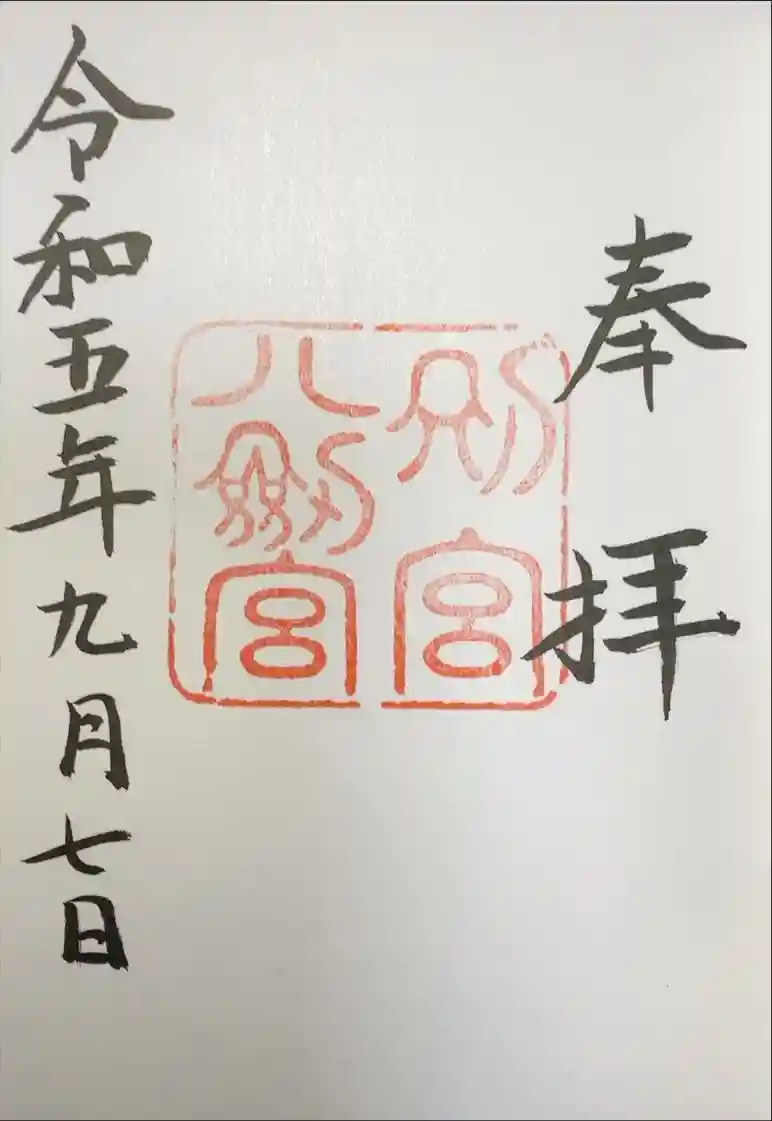 奉拝
別宮
八剱宮
令和五年九月七日